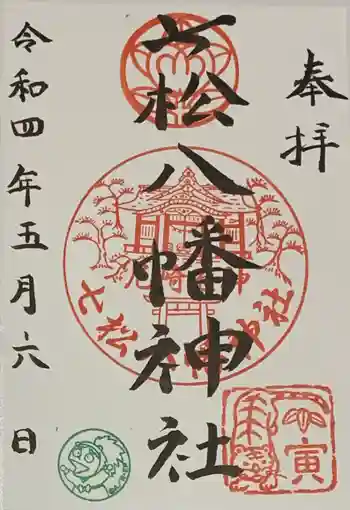 奉拝
七松八幡神社
令和四年五月六日
七松
神社
寅